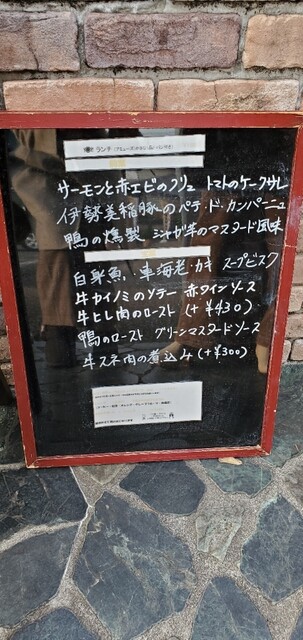 ランチ
サーモンと赤エビのクリュ トマトのケークサレ
伊勢美稲豚のパテ・ド・カンパーニュ
鴨の燻製 ジャガ芋のマスタード風味
白身魚・車海老・カキ スープビスク
牛カイノミのソテー 赤ワインソース
牛ヒレ肉のロースト (+¥430)
鴨のロースト グリーンマスタードソース
牛スネ肉の煮込み(+¥300)